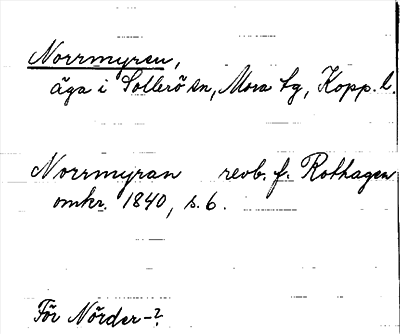 Norrmyren,
äga i Sollerö sn, Mora tg, Kopp. l.
Norrmyran revb. f. Rothagen
omkr. 1840, s. 6.
För Nörder-?